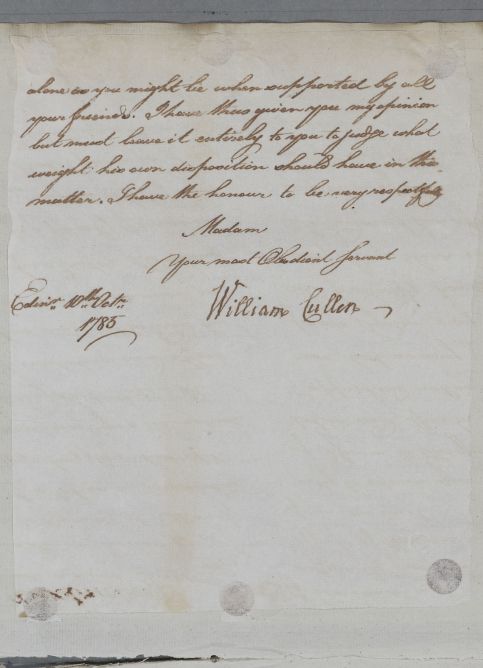 alone as you might be when supported by all
your friends. I have thus given you my opinion
but must leave it entirely to you to judge what
weight his own disposition should have in this
matter. I have the honour to be very respectfully
Madam
Your most Obedient Servant
Edinr. 10th. Octr.
William Cullen
1785